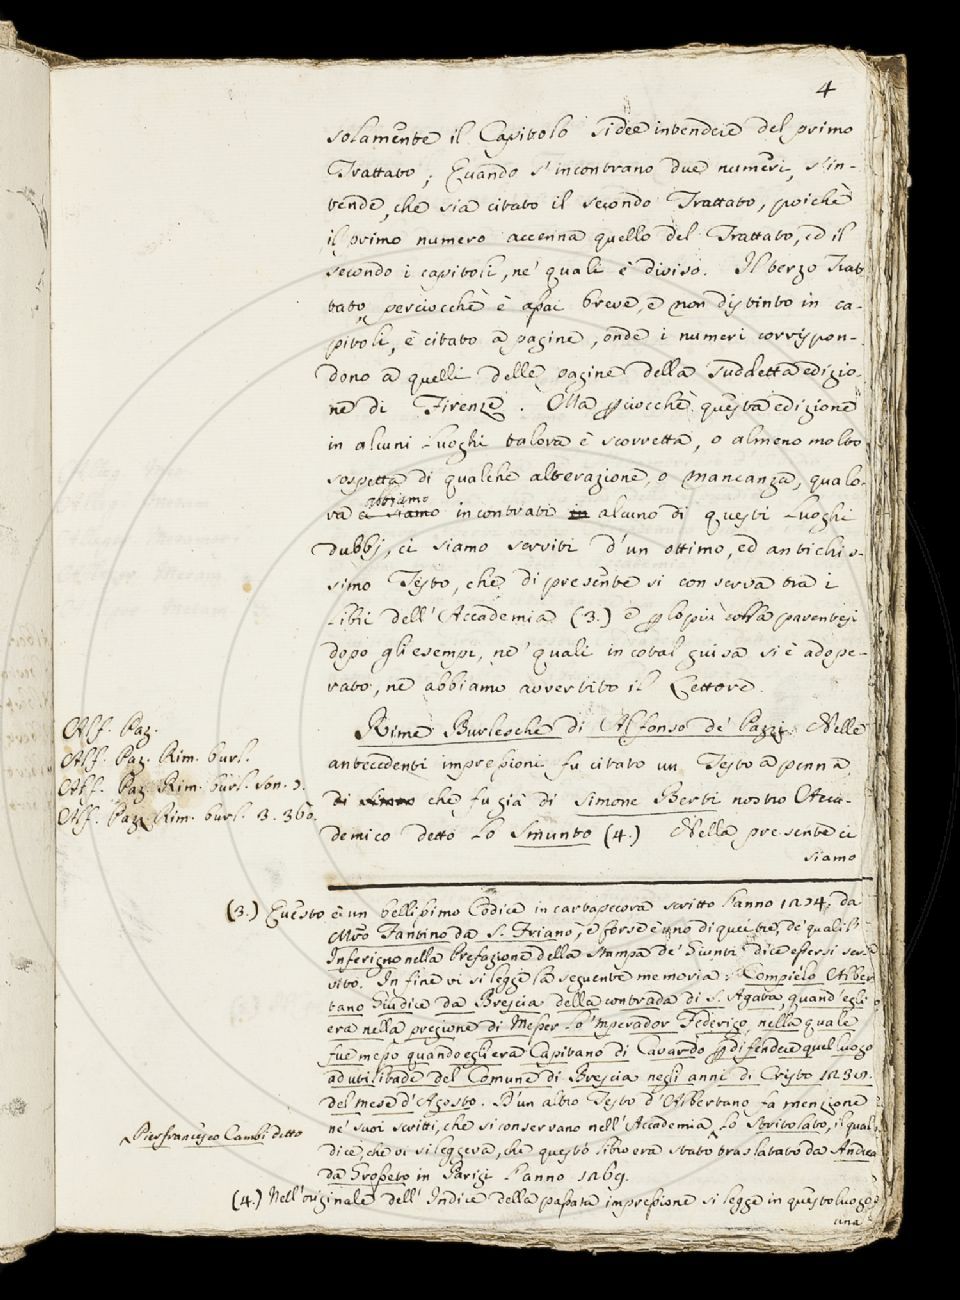 4
solamente il Capitolo si dee intendere del primo
Trattato; Quando s'incontrano due numeri, s'in-
tende, che sia citato il secondo Trattato, poichè
il primo numero accenna quello del Trattato, ed il
secondo i capitoli, ne' quali è diviso. Il terzo Trat
tato, perciocchè è assai breve, e non distinto in ca-
pitoli, è citato a pagine, onde i numeri corrispon-
dono a quelli delle pagine della suddetta edizio-
ne di Firenze. Ma perciocchè questa edizione
in alcuni luoghi talora è scorretta, o almeno molto
sospetta di qualche alterazione, o mancanza, qualo-
abbiamo
ra ci siamo incontrati in alcuno di questi luoghi
dubbj, ci siamo serviti d'un ottimo, ed antichis-
simo Testo, che di presente si conserva tra i
libri dell'Accademia (3.) e p lopiù colla parentesi
dopo gli esempi, ne' quali in cotal guisa si è adope-
rato, ne abbiamo avvertito il Lettore.
Alf. Paz.
Alf. Paz. Rim. burl.
Alf. Paz. Rim. burl. son. 2.
Alf. Paz. Rim. burl. 3. 360.
Rime Burlesche di Alfonso de' Pazzi. Nelle
antecedenti impressioni fu citato un Testo a penna,
di che fu già di Simone Berti nostro Acca-
demico detto Lo Smunto (4.) Nella presente ci
siamo
(3.) Questo è un bellissimo Codice in cartapecora scritto l'anno 1274, da
Mro Fantino da S. Friano, e forse è uno di que' tre, de' quali l'
Inferigno nella Prefazione della Stampa de' Giunti dice essersi ser-
vito. In fine vi si legge la seguente memoria: Compielo Alber
tano Giudice da Brescia della contrada di S. Agata, quand'egli
era nella pregione di Messer Lo'mperador Federigo, nella quale
fue messo quando egli era Capitano di Gavardo p difendere quel luogo
ad utilitade del Comune di Brescia negli anni di Cristo 1238.
del mese d'Agosto. D'un altro Testo d'Albertano fa menzione
ne' suoi scritti, che si conservano nell'Accademia, Lo Stritolato, il qual
Pierfrancesco Cambi detto
dice, che vi si leggeva, che questo libro era stato traslatato da Andrea
da Grosseto in Parigi l'anno 1269.
(4.) Nell'originale dell'Indice della passata impressione si legge in questo luogo
una